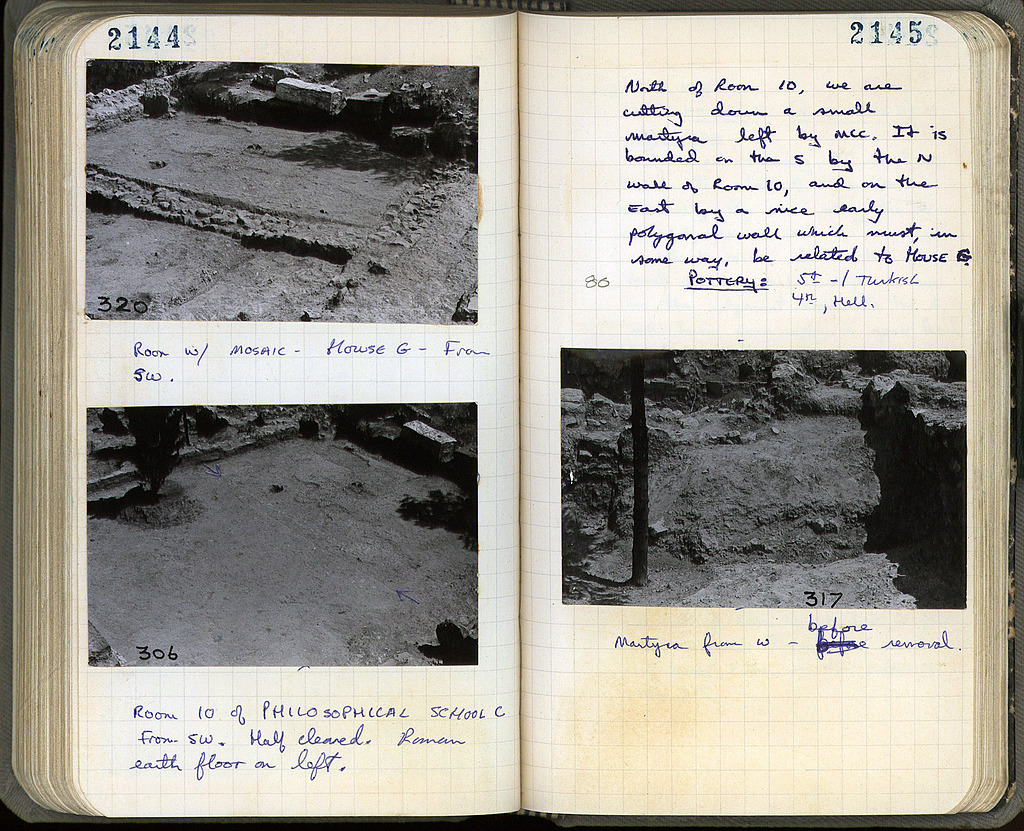 2144
320
Room w/ MOSAIC - HOUSE G - From
SW.
306
ROOM 10 of PHILOSOPHICAL SCHOOL C
From SW. Half cleared. Roman
earth floor on left.
2145
North of Room 10, we are
cutting down a small
martyra left by MCC. It is
bounded on the S by the N
wall of Room 10, and on the
East by a nice early
polygonal wall which must, in
some way, be related to HOUSE G
86
POTTERY: 5th -/ Turkish
4th, Hell.
317
before
Martyra from W - removal.